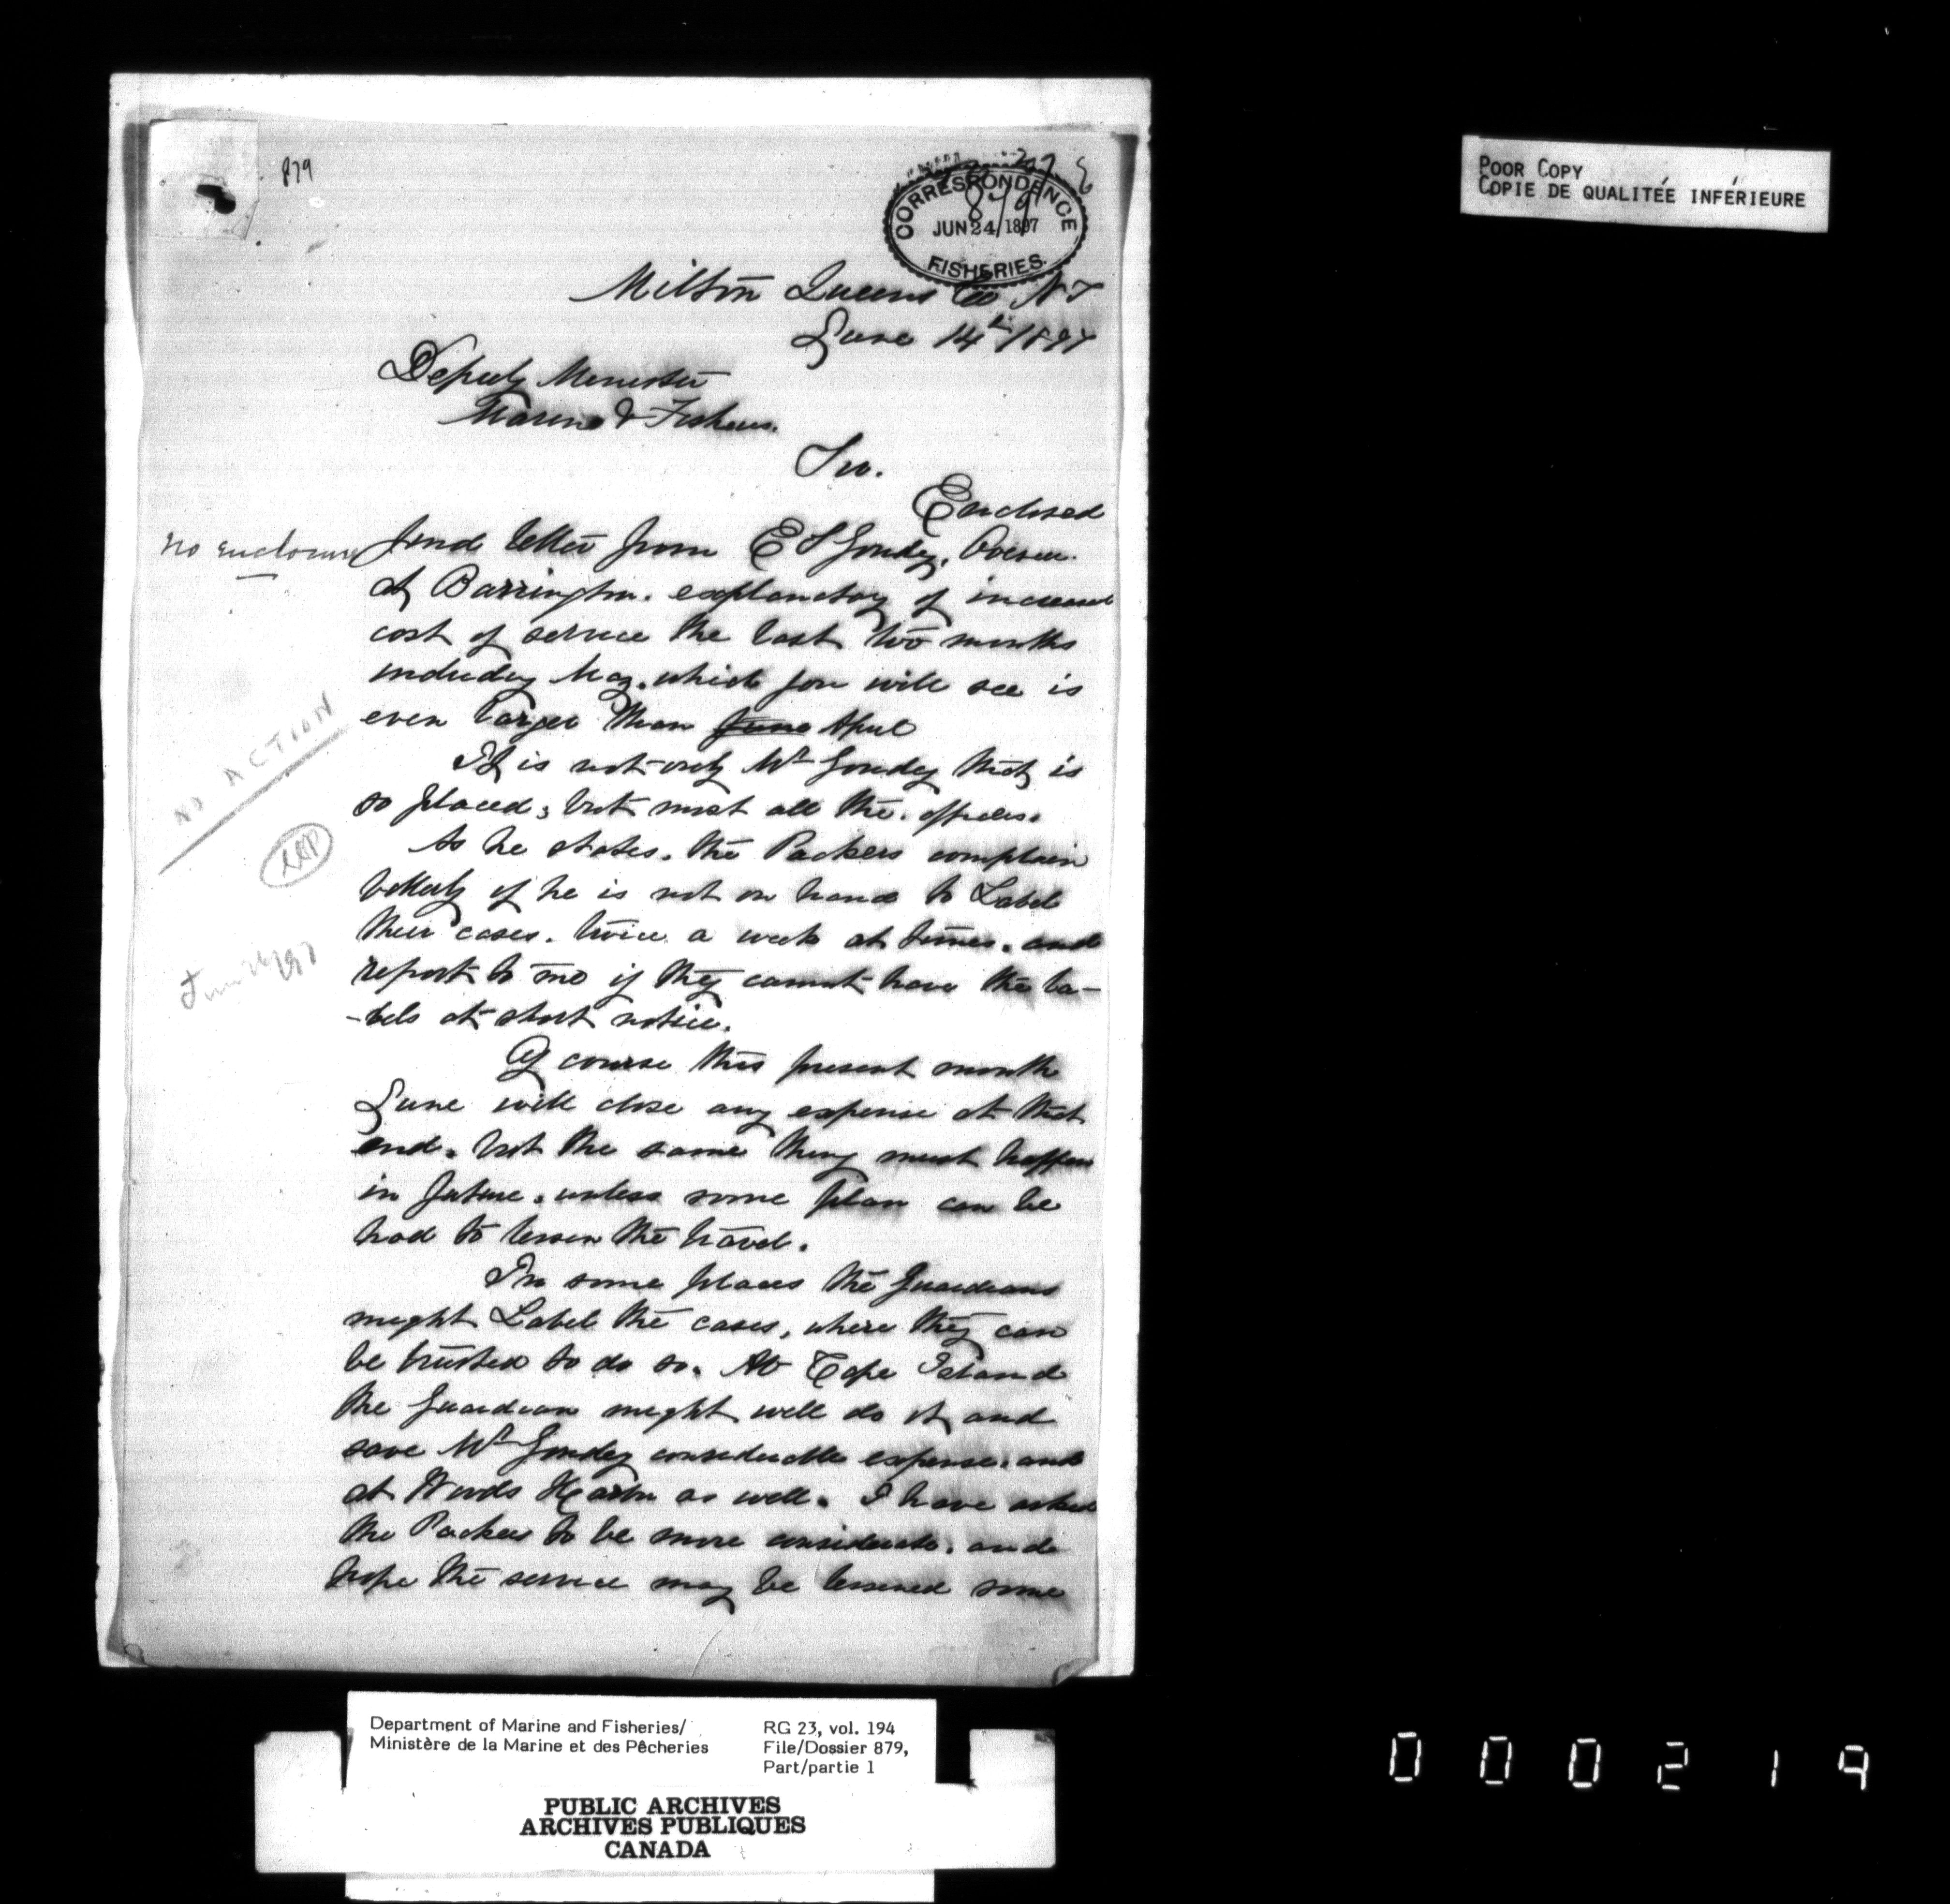 879
CORRESPONDENCE
879
JUN 24 1897
FISHERIES.
Milton Queens Co N S
June 14th 1897
Deputy Minister
Marine & Fisheries.
Sir.
Enclosed
no enclosure
find letter from E S Goudey. Overseer
at Barrington. explanatory of increased
cost of service the last two months
including May. which you will see is
even larger than June April
It is not only Mr Goudey that is
so placed, but most all the officers.
As he states. the Packers complain
bitterly if he is not on hand to Label
their cases. twice a week at times. and
report to me if they cannot have the la-
-bels at short notice.
Of course this present month
June will close any expense at that
end. but the same thing must happen
in future. unless some plan can be
had to lessen the travel.
In some places the Guardians
might Label the cases, where they can
be trusted to do so. At Cape Island
the Guardian might well do it and
save Mr Goudey considerable expense. and
at Woods Harbor as well. I have asked
the Packers to be more considerate. and
hope the service may be lessened some
NO ACTION
June 26/97
POOR COPY
COPIE DE QUALITÉE INFÉRIEURE
Department of Marine and Fisheries/
Ministère de la Marine et des Pêcheries
RG 23, vol. 194
File/Dossier 879,
Part/partie 1
PUBLIC ARCHIVES
ARCHIVES PUBLIQUES
CANADA
000219